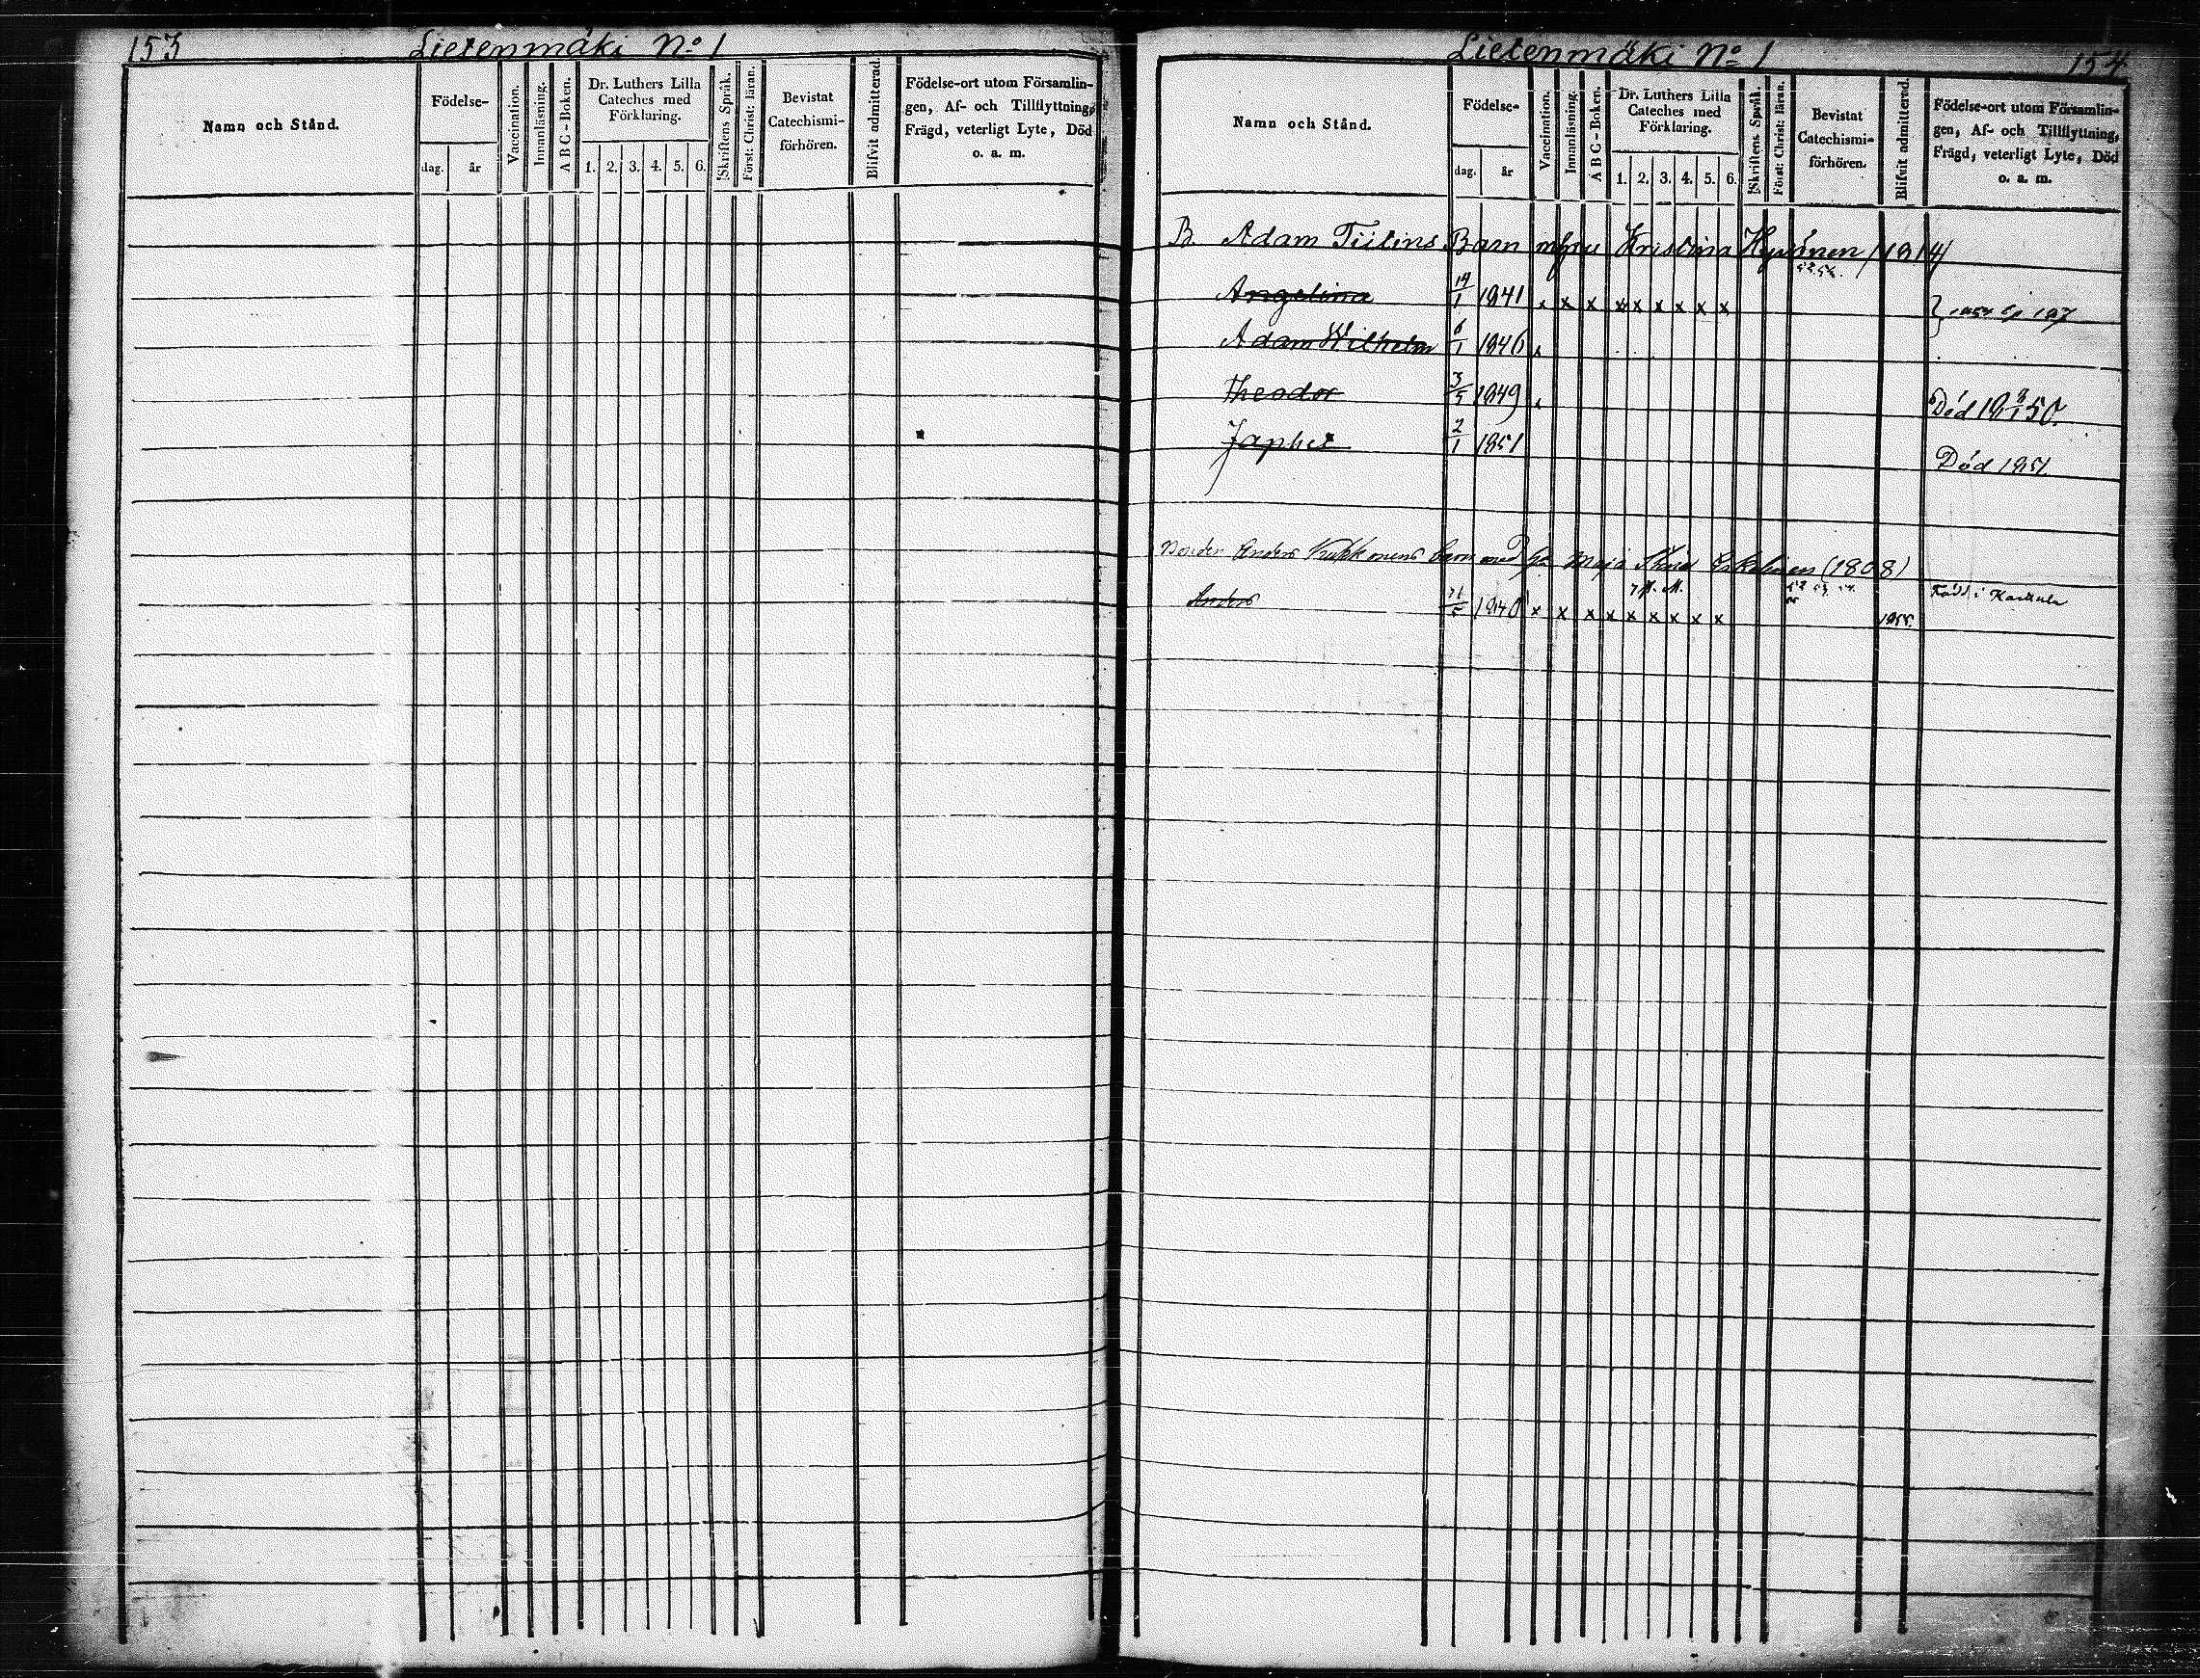 153 Lietenmäki No 1
Namn och Stånd. Födelse- dag. år Vaccination. Innanläsning. A B C - Boken. Dr. Luthers Lilla Cateches med Förklaring. 1. 2. 3. 4. 5. 6. Skriftens Språk. Först: Christ: läran. Bevistat Catechismi-förhören. Blifvit admitterad. Födelse-ort utom Församlin-
gen, Af- och Tillflyttning,
Frägd, veterligt Lyte, Död
o. a. m.
Lietenmäki No 1 154
Namn och Stånd. Födelse- dag. år Vaccination. Innanläsning. A B C - Boken. Dr. Luthers Lilla Cateches med Förklaring. 1. 2. 3. 4. 5. 6. Skriftens Språk. Först: Christ: läran. Bevistat Catechismi-förhören. Blifvit admitterad. Födelse-ort utom Församlin-
gen, Af- och Tillflyttning,
Frägd, veterligt Lyte, Död
o. a. m.
B. Adam Tiitins Barn Kristina /1814/
Angelina 19/1 1841 x x x x x x x x x
Adam Wilhelm 6/1 1846 x
Theodor 3/5 1849 x Död 18 8/1 50.
Japhet 2/1 1851 Död 1851
Anders barn med Maja Stina (1808)
Anders 1840 x x x x x x x x x 1855.